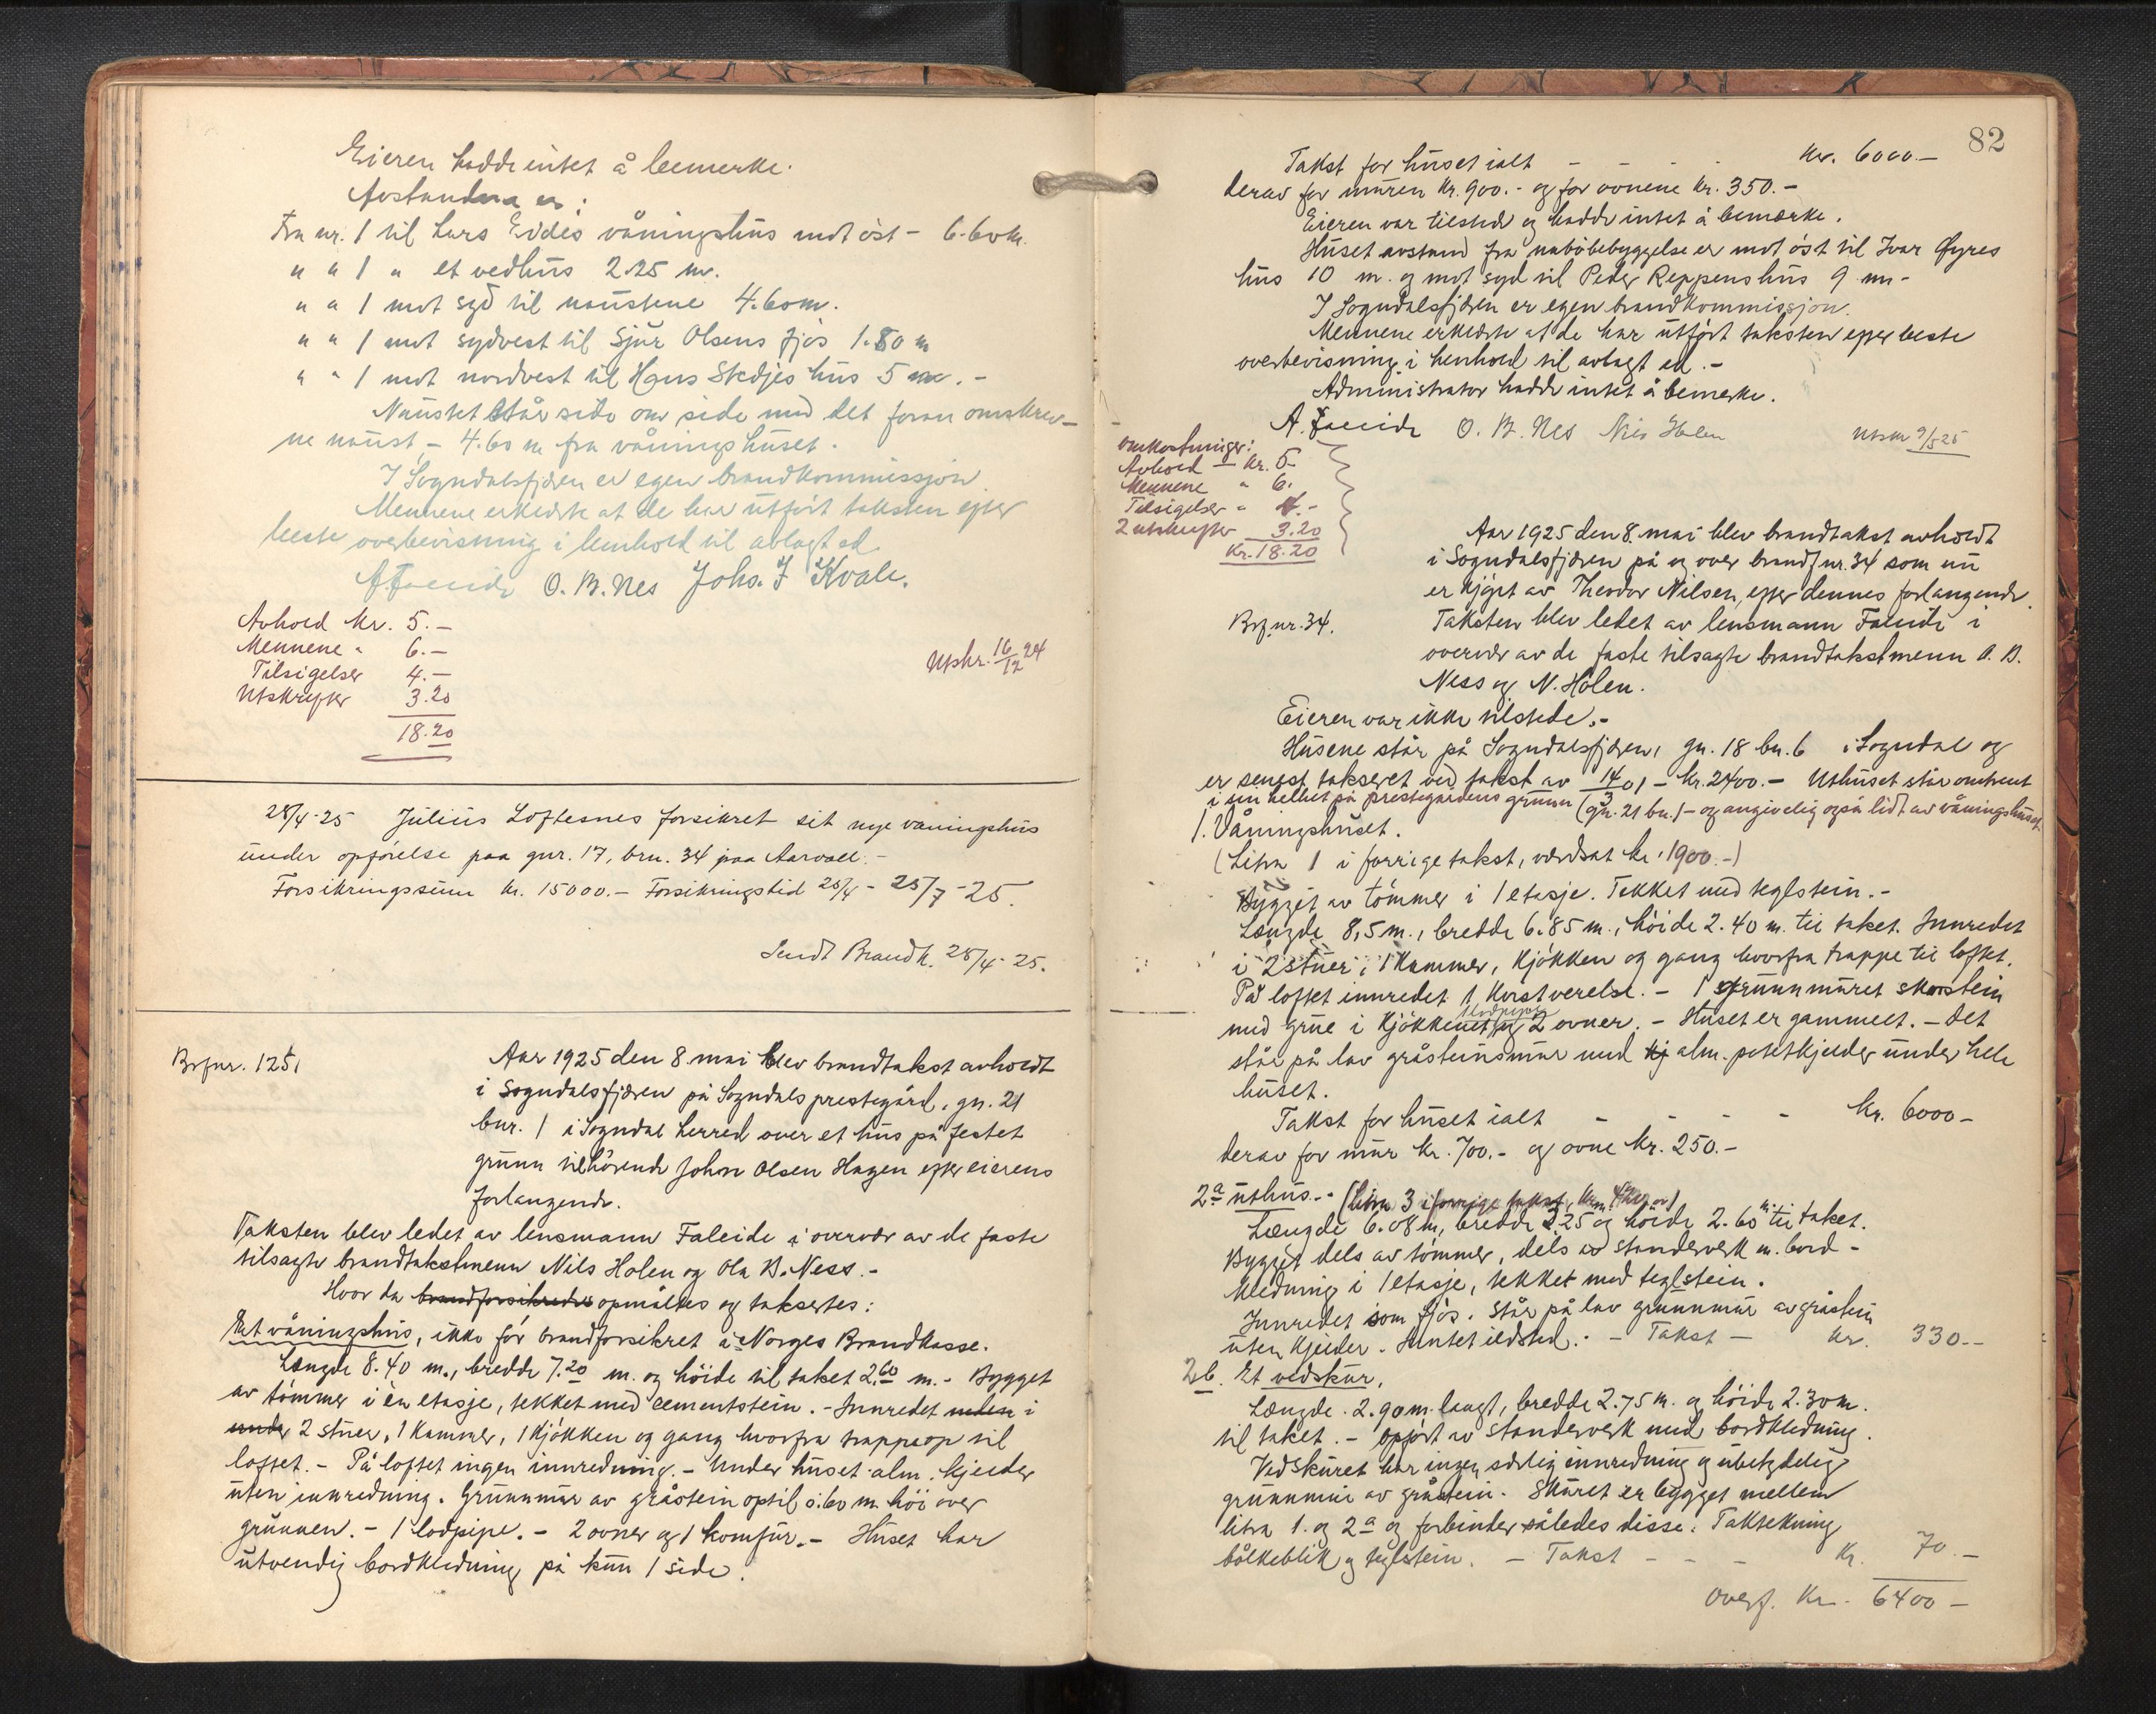 Eieren hadde intet å bemerke.
Avstandene er:
Fra nr. 1 til Lars Eides våningshus mot öst - 6.60 m.
" " 1 " et vedhus 2.25 m.
" " 1 mot syd til naustene 4.60 m.
" " 1 mot sydvest til Sjur Olsens fjös 1.80 m
" " 1 mot nordvest til Hans Stedjes hus 5 m. -
Naustet står side om side med det foran omskrev-
ne naust - 4.60 m fra våningshuset.
I Sogndalsfjæren er egen brandkommissjon.
Mennene erklærte at de har utfört taksten efter
beste overbevisning i henhold til avlagt ed.
A Faleide O. B. Nes Johs. J Kvale.
Avhold kr. 5.-
Mennene " 6.-
Tilsigelser 4.-
Utskrifter 3.20
18.20
Utskr. 16/12 24
28/4-25 Julius Loftesnes forsikret sit nye vaningshus
under opförelse paa gnr. 17, brn. 34 paa Aarvoll.-
Forsikringssum kr. 15000.- Forsikringstid 25/4 - 25/7 -25.
Sendt Brandk. 28/4-25.
Brfnr. 125,
Aar 1925 den 8. mai blev brandtakst avholdt
i Sogndalsfjæren på Sogndals prestegård, gn. 21
bnr. 1 i Sogndal herred over et hus på festet
grunn tilhörende John Olsen Hagen efter eierens
forlangende.
Taksten blev ledet av lensmann Faleide i overvær av de faste
tilsagte brandtakstmenn Nils Holen og Ola B. Ness.-
Hvor da brandforsikredes opmåltes og taksertes:
Et våningshus, ikke för brandforsikret i Norges Brandkasse.
Længde 8.40 m., bredde 7.20 m. og höide til taket 2.60 m.- Bygget
av tömmer i èn etasje, tekket med cementstein.- Innredet uten i
under 2 stuer, 1 kammer, 1 kjökken og gang hvorfra trappeop til
loftet.- På loftet ingen innredning.- Under huset alm. kjelder
uten innredning. Grunnmur av gråstein optil 0.60 m höi over
grunnen.- 1 lodpipe.- 2 ovner og 1 komfur.- Huset har
utvendig bordkledning på kun 1 side.
82
Takst for huset ialt - - - - kr. 6000.-
derav for muren kr. 900.- og for ovnene kr. 350.-
Eieren var tilstede og hadde intet å bemærke.
Huset avstand fra nabobebyggelse er mot öst til Ivar Øyres
hus 10 m. og mot syd til Peder Reppens hus 9 m-
I Sogndalsfjæren er egen brandkommissjon.
Mennene erklærte at de har utfört taksten efter beste
overbevisning i henhold til avlagt ed.-
Administrator hadde intet å bemerke.
A. Faleide O. B. Nes Nils Holen
Utskr 9/5 25
Omkostninger:
Avhold - kr. 5-
Mennene " 6.
Tilsigelser " 4.-
2 utskrifter 3.20
kr. 18.20
Aar 1925 den 8. mai blev brandtakst avholdt
i Sogndalsfjæren på og over brandf nr. 34 som nu
er kjöpt av Theodor Nilsen, efter dennes forlangende.
Brfnr. 34.
Taksten blev ledet av lensmann Faleide i
overvær av de faste tilsagte brandtakstmenn O. B.
Ness og N. Holen.
Eieren var ikke tilstede.-
Husene står på Sogndalsfjæren, gn. 18 bn. 6 i Sogndal og
er senest taksert ved takst av 14/3 01 - kr. 2400.- Uthuset står omtrent
i sin helhet på prestegårdens grunn (gn. 21 bn. 1) - og angivelig også lidt av våningshuset.
1. Våningshuset.
(Litra 1 i forrige takst, værdsat kr. 1900.-)
Bygget av tömmer i 1 etasje. Tekket med teglstein.-
Længde 8,5 m., bredde 6.85 m., höide 2.40 m. til taket. Innredet
i 2 stuer, 1 kammer, kjökken og gang hvorfra trappe til loftet.
På loftet innredet 1 kvistverelse.- 1 grunnmuret skorstein
med grue i kjökkenet, 1 lodpipe og 2 ovner.- Huset er gammelt.- Det
står på lav gråsteinsmur med kj alm. potetkjelder under hele
huset.
Takst for huset ialt - - - - kr. 6000-
derav for mur kr. 700.- og ovne kr. 250.-
2a uthus.- (litra 3 i forrige takst,
Længde 6.08 m, bredde 3.25 m og höide 2.60 m. til taket.
Bygget dels av tömmer, dels av standerverk m. bord-
kledning i 1 etasje, tekket med teglstein.
Innredet som fjös. Står på lav grunnmur av gråstein
uten kjelder. Intet ildsted.- Takst - kr. 330.-
2b. Et vedskur.
Længde 2.90 m. langt, bredde 2.75 m. og höide 2.30 m.
til taket.- Opfört av standerverk med bordkledning.
Vedskuret har ingen særlig innredning og ubetydelig
grunnmur av gråstein. Skuret er bygget mellem
litra 1. og 2a og forbinder således disse. Taktekning
bölkeblik og teglstein. - Takst - - - kr. 70.-
Overf. kr. 6400-